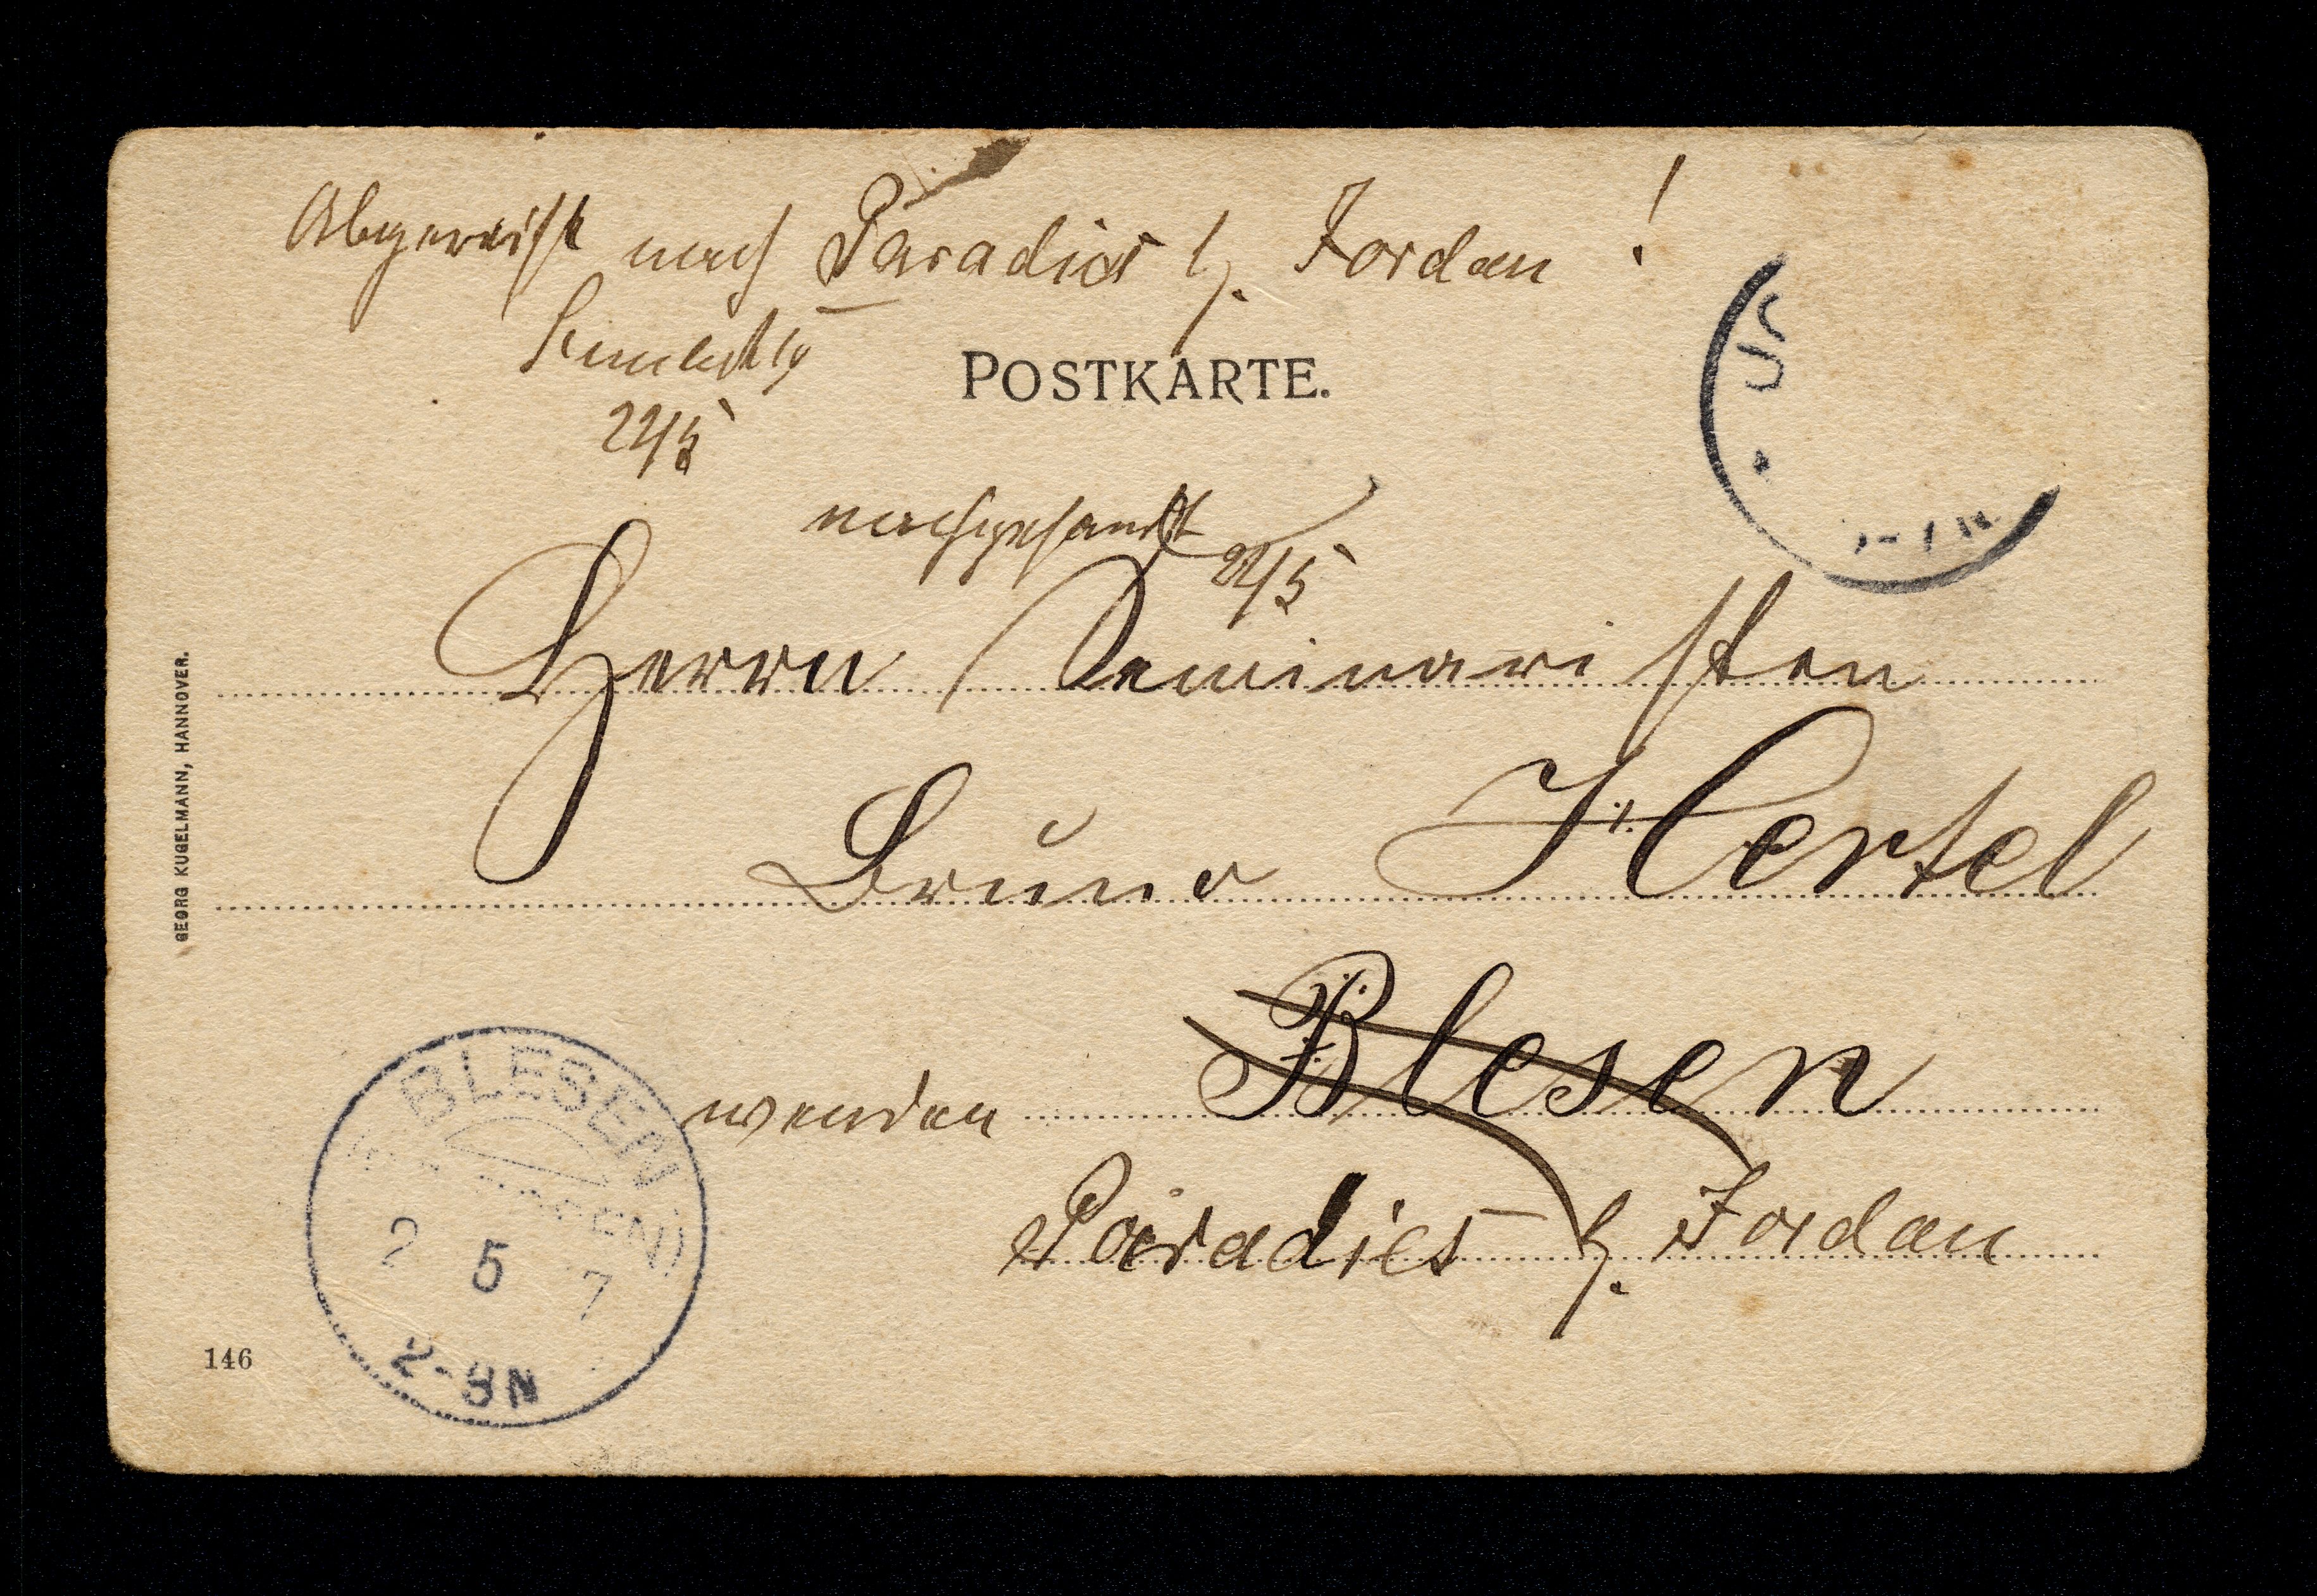 Abgereist nach Paradies b/. Jordan !
22/5
POSTKARTE.
nachgesandt
22/5
Herrn Seminaristen
Bruno Hertel
Blesen
wenden
Paradies b/. Jordan
GEORG KUGELMANN, HANNOVER.
BLESEN
5 7
2-3N
146